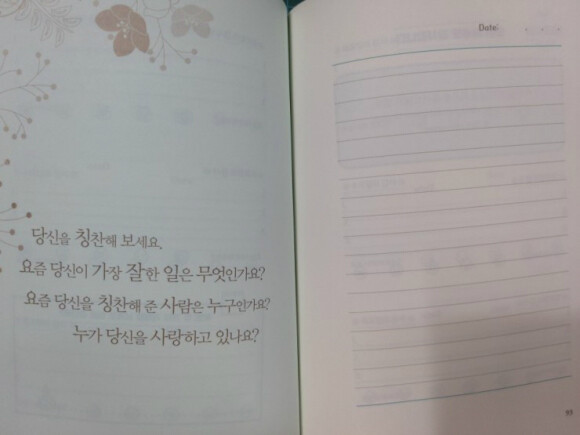 당신을 칭찬해 보세요.
요즘 당신이 가장 잘한 일은 무엇인가요?
요즘 당신을 칭찬해 준 사람은 누구인가요?
누가 당신을 사랑하고 있나요?
Date: